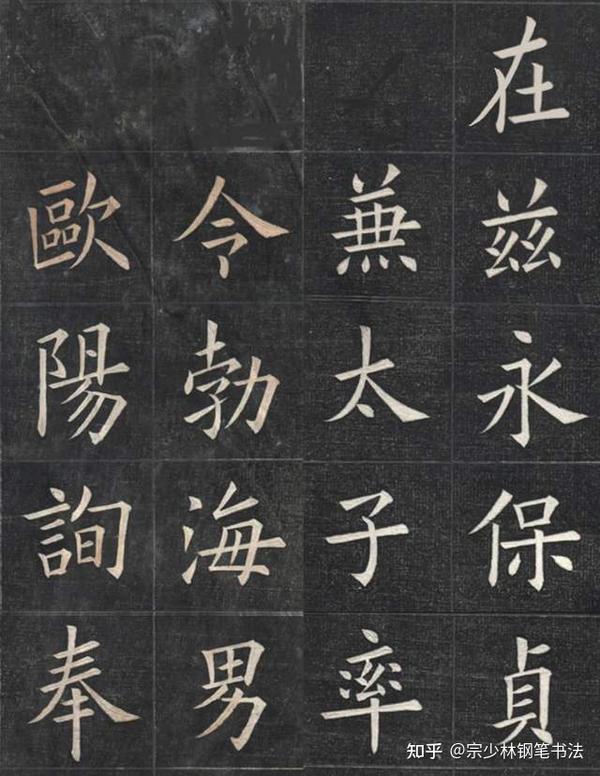 在茲永保貞
兼太子率
令勃海男
歐陽詢奉
知乎 @宗少林钢笔书法